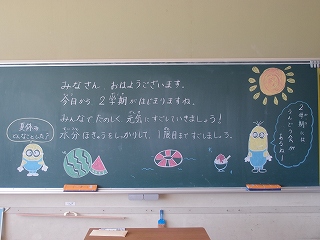 みなさん、おはようございます。
今日から 2学期がはじまりますね。
みんなでたのしく、元気にすごしていきましょう！
水分ほきゅうをしっかりして、1週目もすごしましょう。
夏休み
どんなことした？
2学期には
うんどう会が
あるねー！